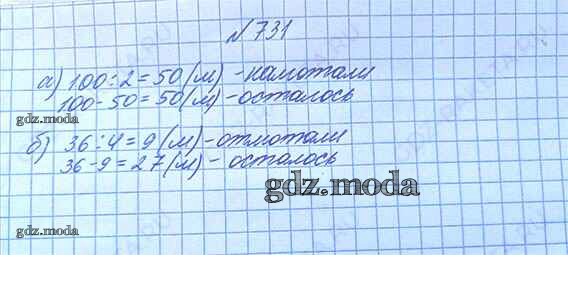 № 731
а) 100 : 2 = 50 (м) - намотали
100 - 50 = 50 (м) - осталось
gdz.moda
б) 36 : 4 = 9 (м) - отмотали
36 - 9 = 27 (м) - осталось
gdz.moda
gdz.moda